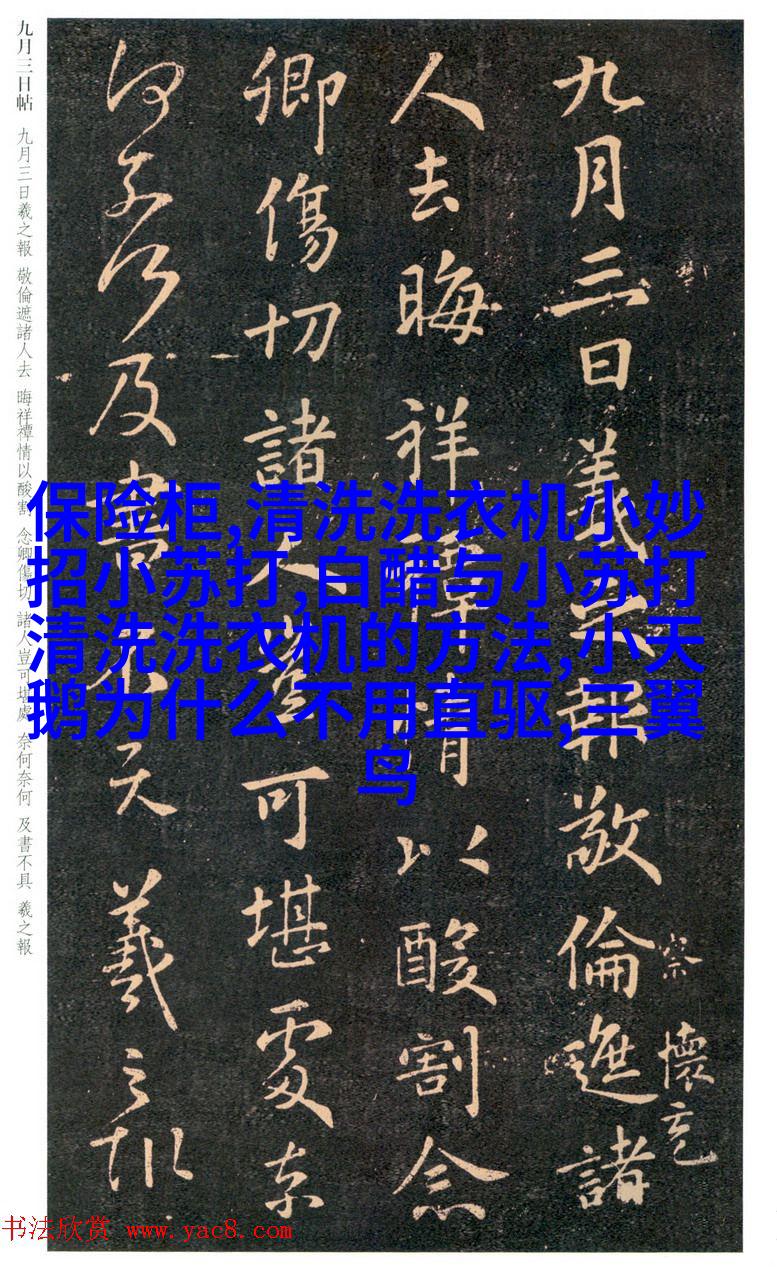 九月三日羲之報敬倫遮諸
察 懷充
人去晦祥禫情以酸割念
卿傷切諸人豈可堪處奈
何奈何及書不具羲之報
九月三日帖 九月三日羲之報 敬倫遮諸人去 晦祥禫情以酸割 念卿傷切 諸人豈可堪處 奈何奈何 及書不具 羲之報
保险柜,清洗洗衣机小妙
招小苏打,白醋与小苏打
清洗洗衣机的方法,小天
鹅为什么不用直驱,三翼
鸟
书法欣赏 www.yac8.com